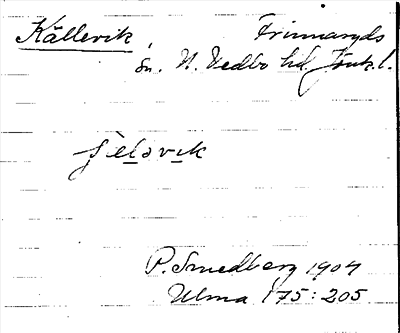 Källevik, Frinnaryds
sn. N. Vedbo hd. Jönk. l.
ʃelǝvɩk
P. Smedberg 1904
Ulma 175:205